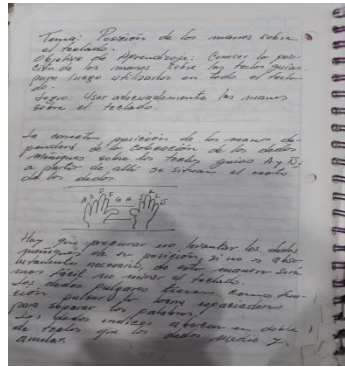 Tema: Posición de las manos sobre
el teclado.
Objetivo de Aprendizaje: Conocer la posi-
ción de las manos sobre las teclas guías
para luego utilizarlas en todo el tecla-
do.
Logro: Usar adecuadamente las manos
sobre el teclado.
La correcta posición de las manos de-
penderá de la colocación de los dedos
meñiques sobre las teclas guías A y Ñ,
a partir de allí se sitúan el resto
de los dedos.
A S D F G H J K L Ñ
Hay que procurar no levantar los dedos
meñiques de su posición, si no es abso-
lutamente necesario, de esta manera será
más fácil no mirar el teclado.
Los dedos pulgares tienen como fun-
ción pulsar la barra espaciadora
para separar las palabras.
Los dedos índices abarcan el doble
de teclas que los dedos medio y
anular.